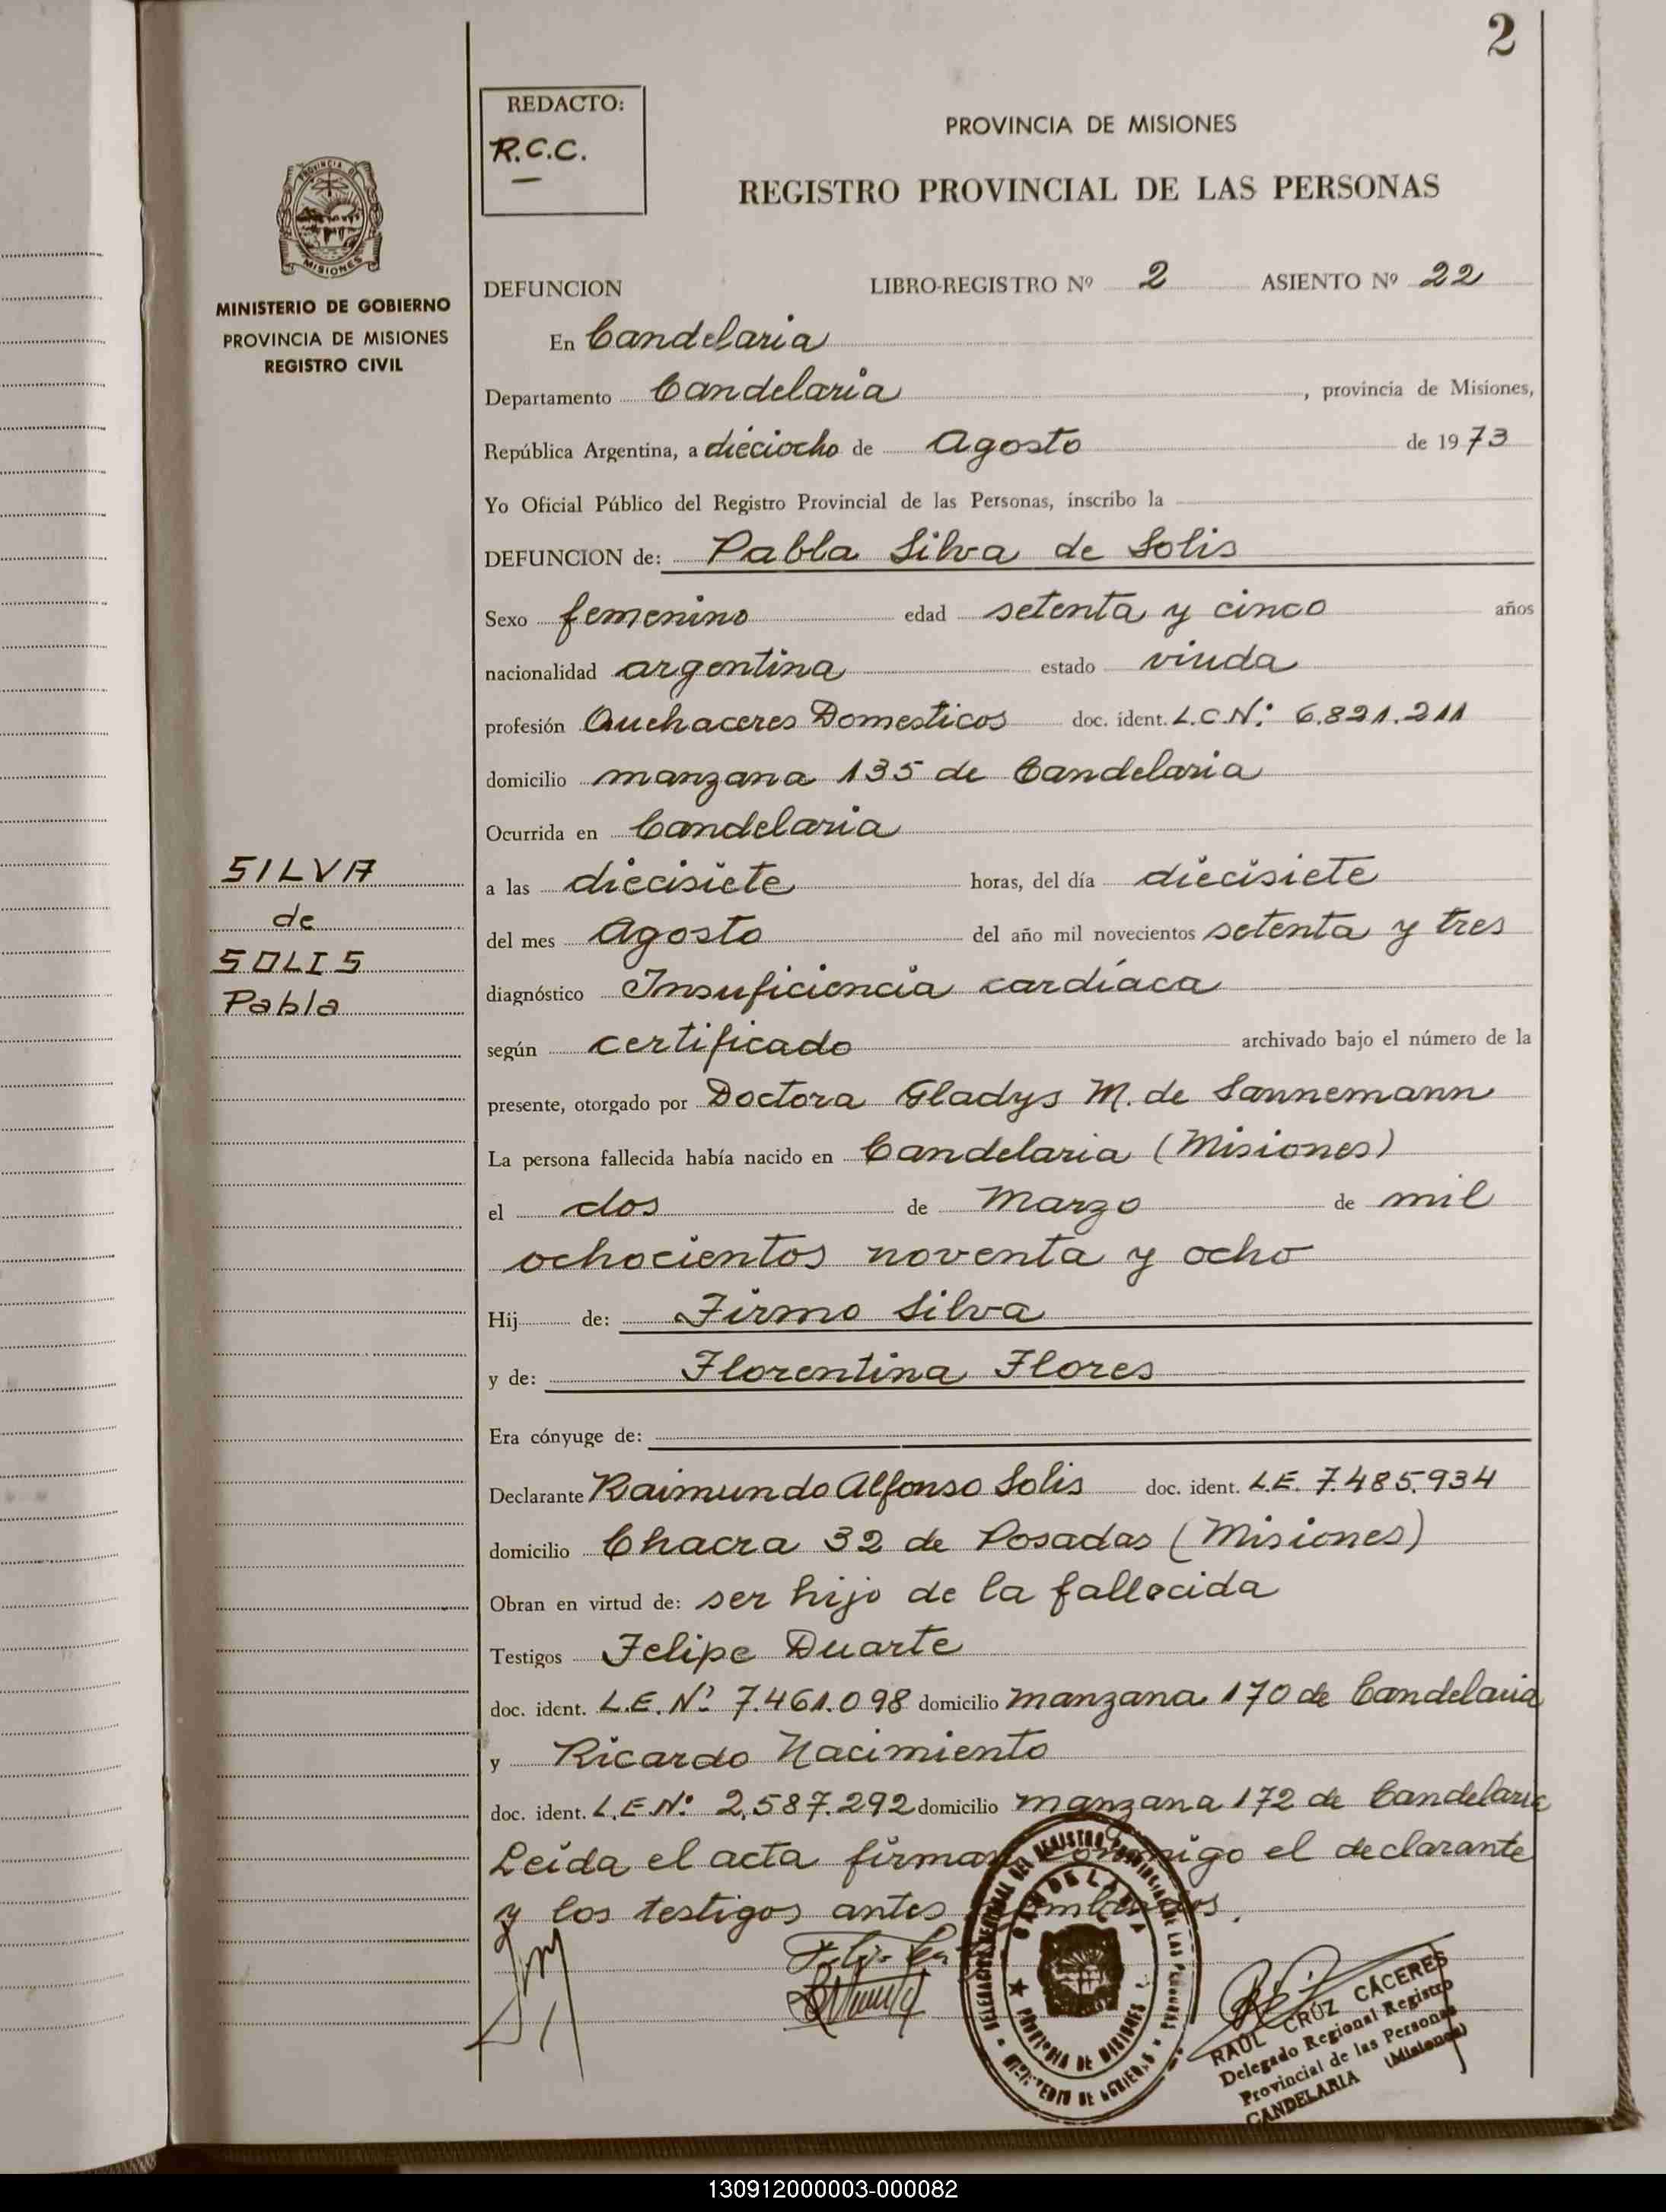 2
REDACTO:
R.C.C.
PROVINCIA DE MISIONES
REGISTRO PROVINCIAL DE LAS PERSONAS
PROVINCIA DE
MISIONES
MINISTERIO DE GOBIERNO
PROVINCIA DE MISIONES
REGISTRO CIVIL
DEFUNCION LIBRO-REGISTRO Nº 2 ASIENTO Nº 22
En Candelaria
Departamento Candelaria, provincia de Misiones,
República Argentina, a dieciocho de Agosto de 1973
Yo Oficial Público del Registro Provincial de las Personas, inscribo la
DEFUNCION de: Pabla Silva de Solis
Sexo femenino edad setenta y cinco años
nacionalidad argentina estado viuda
profesión Quehaceres Domesticos doc. ident. L.C.Nº 6.821.211
domicilio manzana 135 de Candelaria
Ocurrida en Candelaria
SILVA
de
SOLIS
Pabla
a las diecisiete horas, del día diecisiete
del mes Agosto del año mil novecientos setenta y tres
diagnóstico Insuficiencia cardíaca
según certificado archivado bajo el número de la
presente, otorgado por Doctora Gladys M. de Sannemann
La persona fallecida había nacido en Candelaria (Misiones)
el dos de Marzo de mil
ochocientos noventa y ocho
Hij de: Firmo Silva
y de: Florentina Flores
Era cónyuge de:
Declarante Raimundo Alfonso Solis doc. ident. L.E. 7.485.934
domicilio Chacra 32 de Posadas (Misiones)
Obran en virtud de: ser hijo de la fallecida
Testigos Felipe Duarte
doc. ident. L.E. Nº 7.461.098 domicilio manzana 170 de Candelaria
y Ricardo Nacimiento
doc. ident. L.E Nº 2.587.292 domicilio manzana 172 de Candelaria
Leída el acta firman conmigo el declarante
y los testigos antes nombrados.
CANDELARIA
PROVINCIA DE MISIONES
RAUL CRUZ CÁCERES
Delegado Regional Registro
Provincial de las Personas
CANDELARIA (Misiones)
130912000003-000082